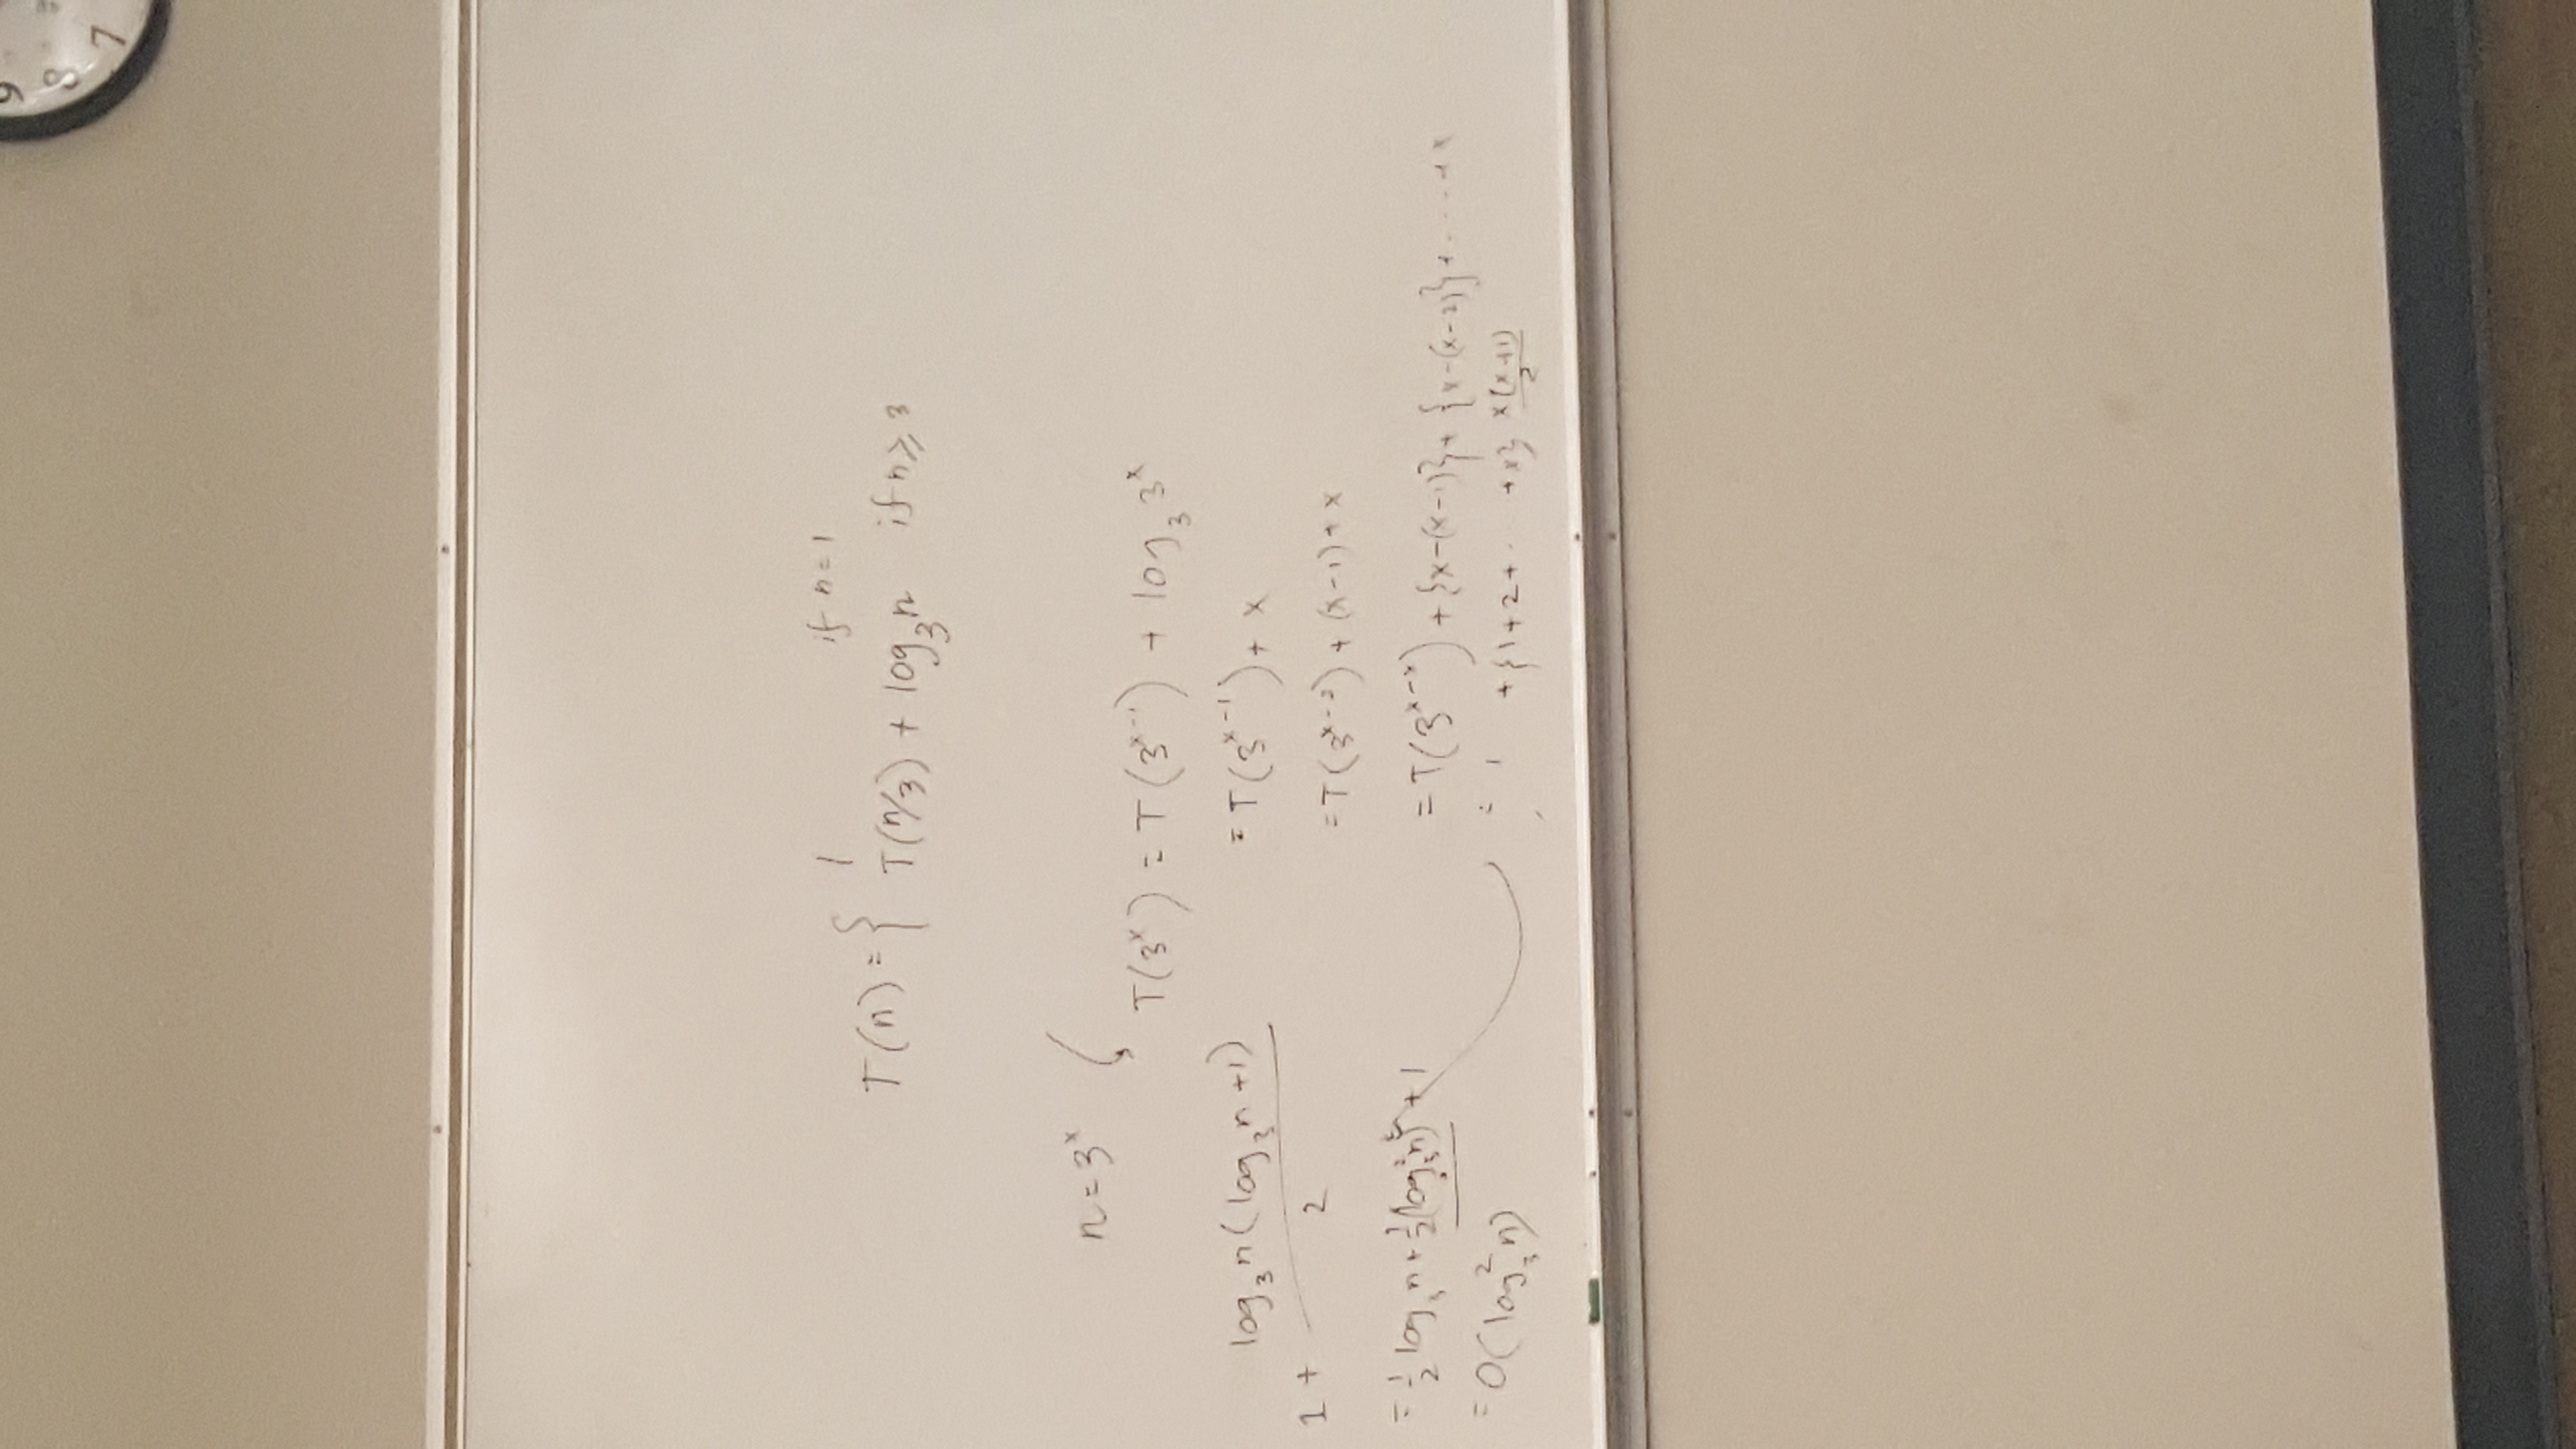 9
8
7
T(n) = { 1 if n = 1
T(n/3) + log₃n if n ⩾ 3
n = 3ˣ
T(3ˣ) = T(3ˣ⁻¹) + log₃ 3ˣ
= T(3ˣ⁻¹) + x
= T(3ˣ⁻²) + (x-1) + x
= T(3ˣ⁻ˣ) + {x-(x-1)} + {x-(x-2)} + ..... + x
= 1 + {1+2+ ... +x} x(x+1)/2
1 + log₃n(log₃n+1)/2
= ½ log₃n + ½(log₃n)² + 1
= O(log₃²n)